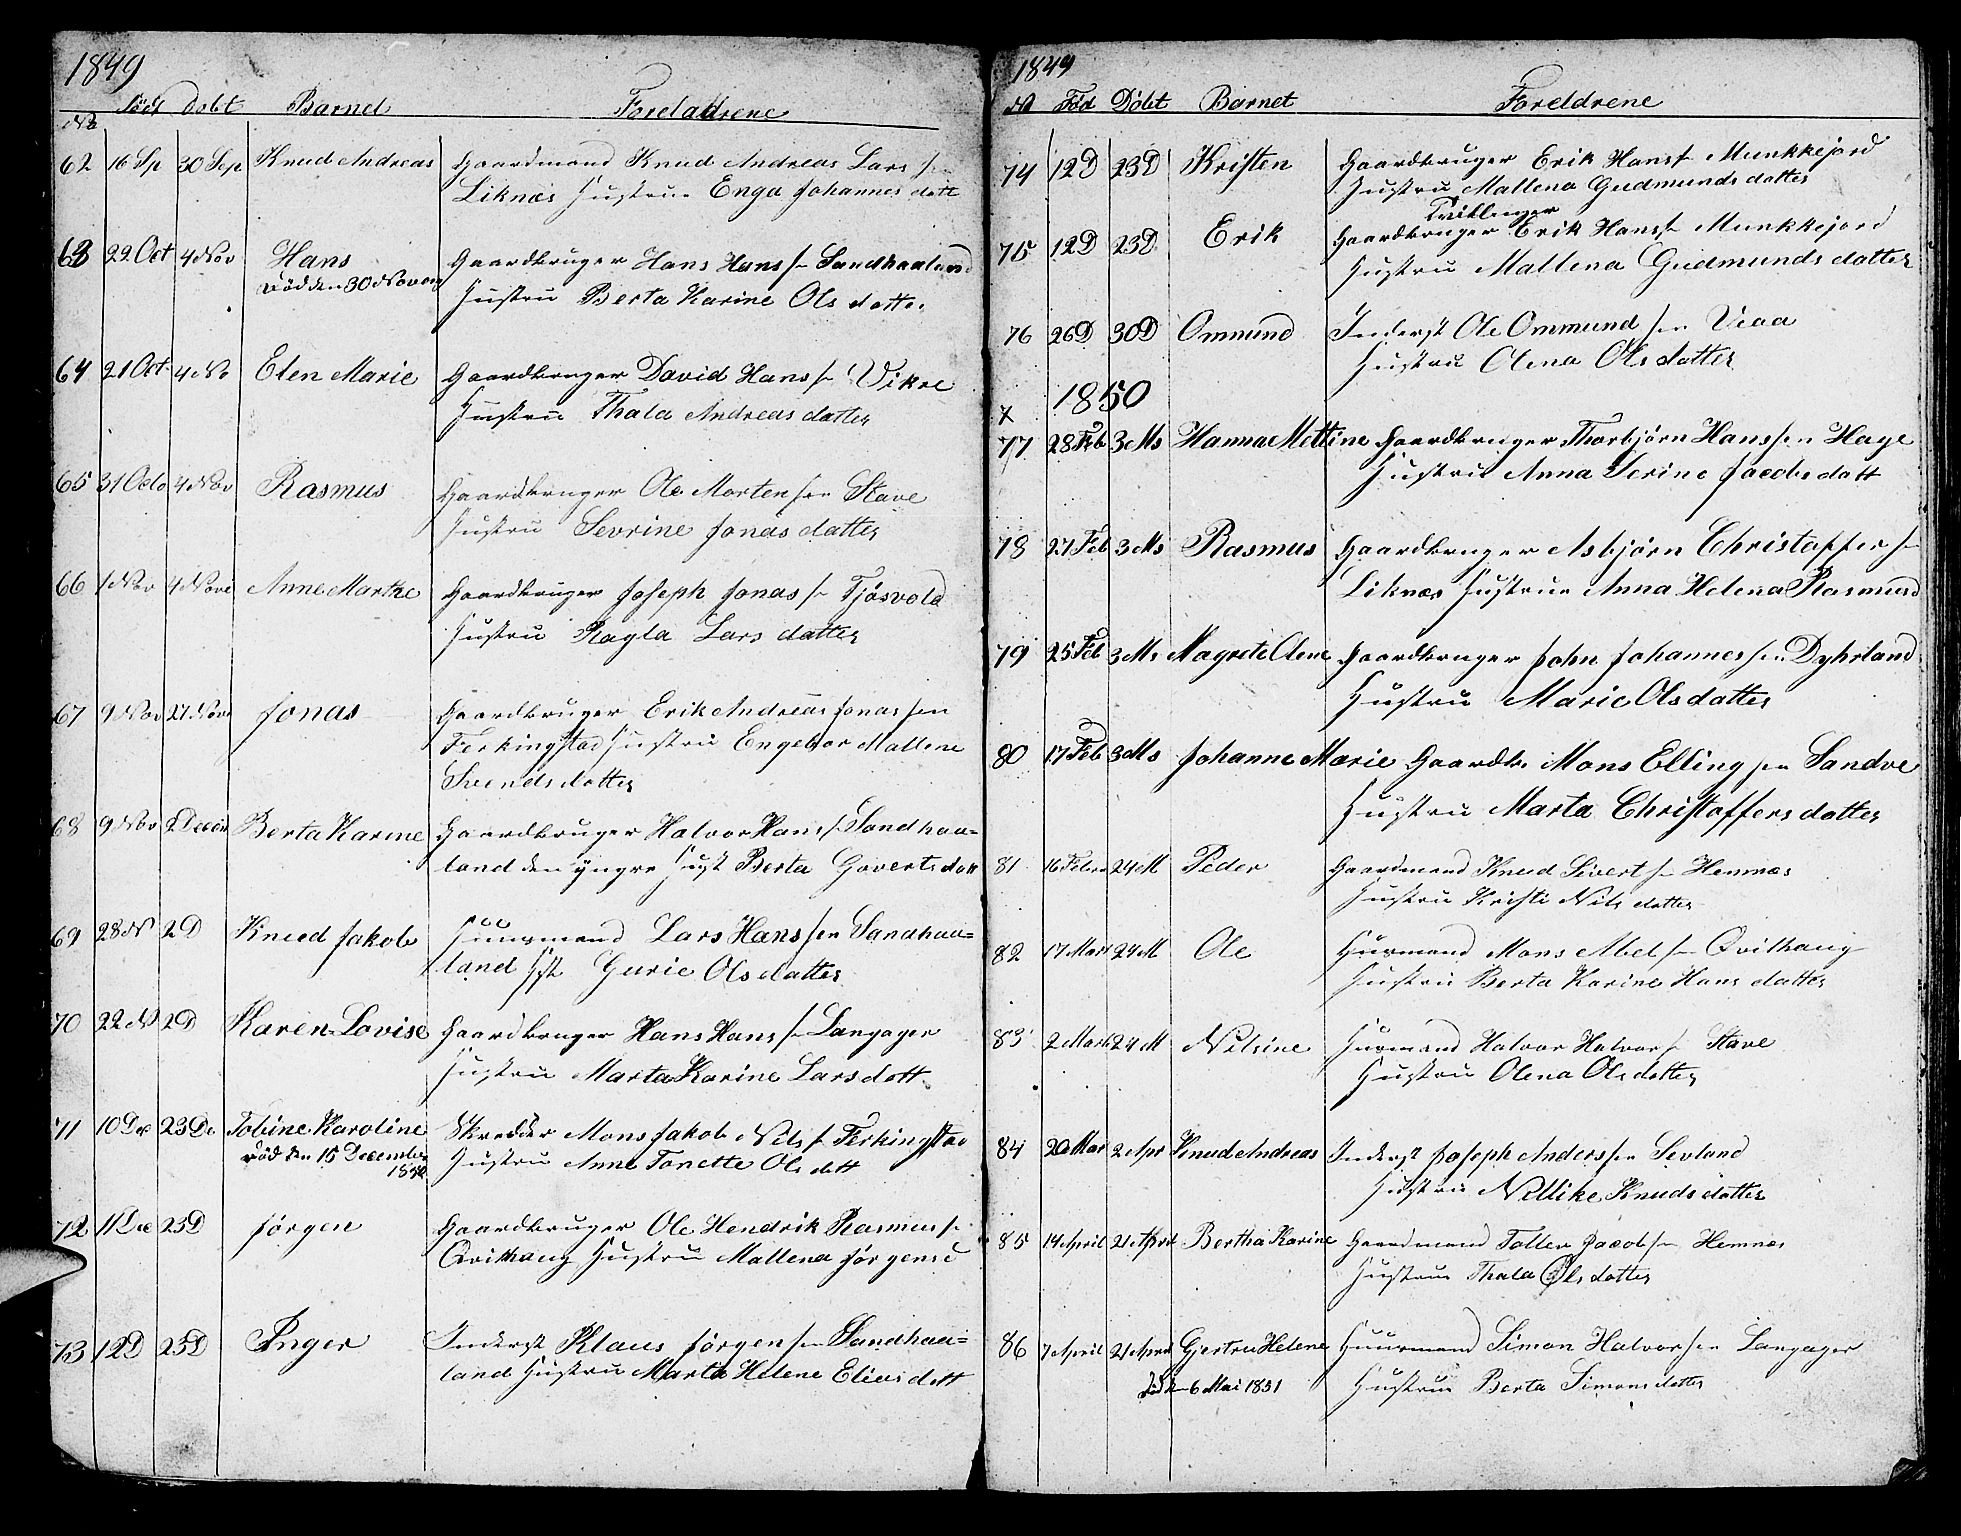 1849
No Föd dobt Barnet Foreladrene
62 16 Sp 30 Sep Knud Andreas Gaardmand Knud Andreas Lars sen
Liknæs Hustrue Enga Johannes datt
63 29 Oct 4 Nov Hans Gaardbruger Hans Hans sen Sandhaaland
död den 30 Novem Hustru Berta Karine Ols datter
64 21 Oct 4 No Elen Marie Gaardbruger David Hans sn Vikre
Hustru Thala Andreas datter
65 31 Octo 4 Nov Rasmus Gaardbruger Ole Morten sen Stave
Hustru Sevrine Jonas datter
66 1 Nov 4 Nove Anne Marthe Gaardbruger Joseph Jonas sn Tjösvold
Hustru Ragla Lars datter
67 9 Nov 27 Nove Jonas Gaardbruger Erik Andreas Jonas sen
Ferkingstad Hustru Engebor Mallene
Svends datter
68 9 Nov 2 Decem Berta Karine Gaardbruger Halvor Hans sn Sandhaa=
land den yngre Hust Berta Goverts datt
69 28 N 2 D Knud Jakob Huusmand Lars Hans sen Sandhaa=
land Hst Gurie Ols datter
70 22 N 2 D Karen Lovise Gaardbruger Hans Hans sn Langager
Hustru Marta Karine Lars datt
71 10 De 23 De Tobine Karoline Skredder Mons Jakob Nils sn Ferkingstad
död den 15 December Hustru Anne Tonette Ols datt
72 11 De 23 D Jörgen Gaardbruger Ole Hendrik Rasmus sn
Qvilhaug Hustru Mallena Jörgens d
73 12 D 23 D Inger Inderst Klaus Jörgen sen Sandhaa=
land Hustru Marta Helene Elias datt
1849
No Föd Döbt Barnet Foreldrene
74 12 D 23 D Kristen Gaardbruger Erik Hans sn Munkkejord
Hustru Mallena Gudmunds datter
Tvillinger
75 12 D 23 D Erik Gaardbruger Erik Hans sn Munkkejord
Hustru Mallena Gudmunds datter
76 26 D 30 D Ommund Inderst Ole Ommund sen Veaa
Hustru Olena Ols datter
1850
x
77 28 Feb 3 Ms Hanna Mettine Gaardbruger Thorbjörn Hans sen Hage
Hustru Anna Serine Jacobs datt
78 27 Feb 3 Ms Rasmus Gaardbruger Asbjörn Christopffer sn
Liknæs Hustrue Anna Helena Rasmusd
79 25 Feb 3 Ms Magrete Olene Gaardbruger John Johannes sen Dyhrland
Hustru Marie Ols datter
80 17 Feb 3 Ms Johanne Marie Gaardbr Mons Elling sen Sandve
Hustru Marta Christoffers datter
81 16 Febru 24 M Peder Gaardmand Knud Sivert sn Hemnæs
Hustru Kristi Nils datter
82 17 Mart 24 M Ole Husmand Mons Abel sn Qvilhaug
Hustru Berta Karine Hans datter
83 2 Mart 24 M Nilsine Husmand Halvor Halvor sn Stave
Hustru Olena Ols datter
84 20 Mar 2 Apr Knud Andreas Inderst Joseph Anders sen Sevland
Hustru Nillike Knuds datter
85 14 April 21 April Bertha Karine Gaardmand Tollev Jacob sn Hemnæs
Hustrue Thala Ols datter
86 7 April 21 April Gjertru Helene Huusmand Simon Halvor sen Langager
död den 6 Mai 1851 Hustrue Berta Simons datter